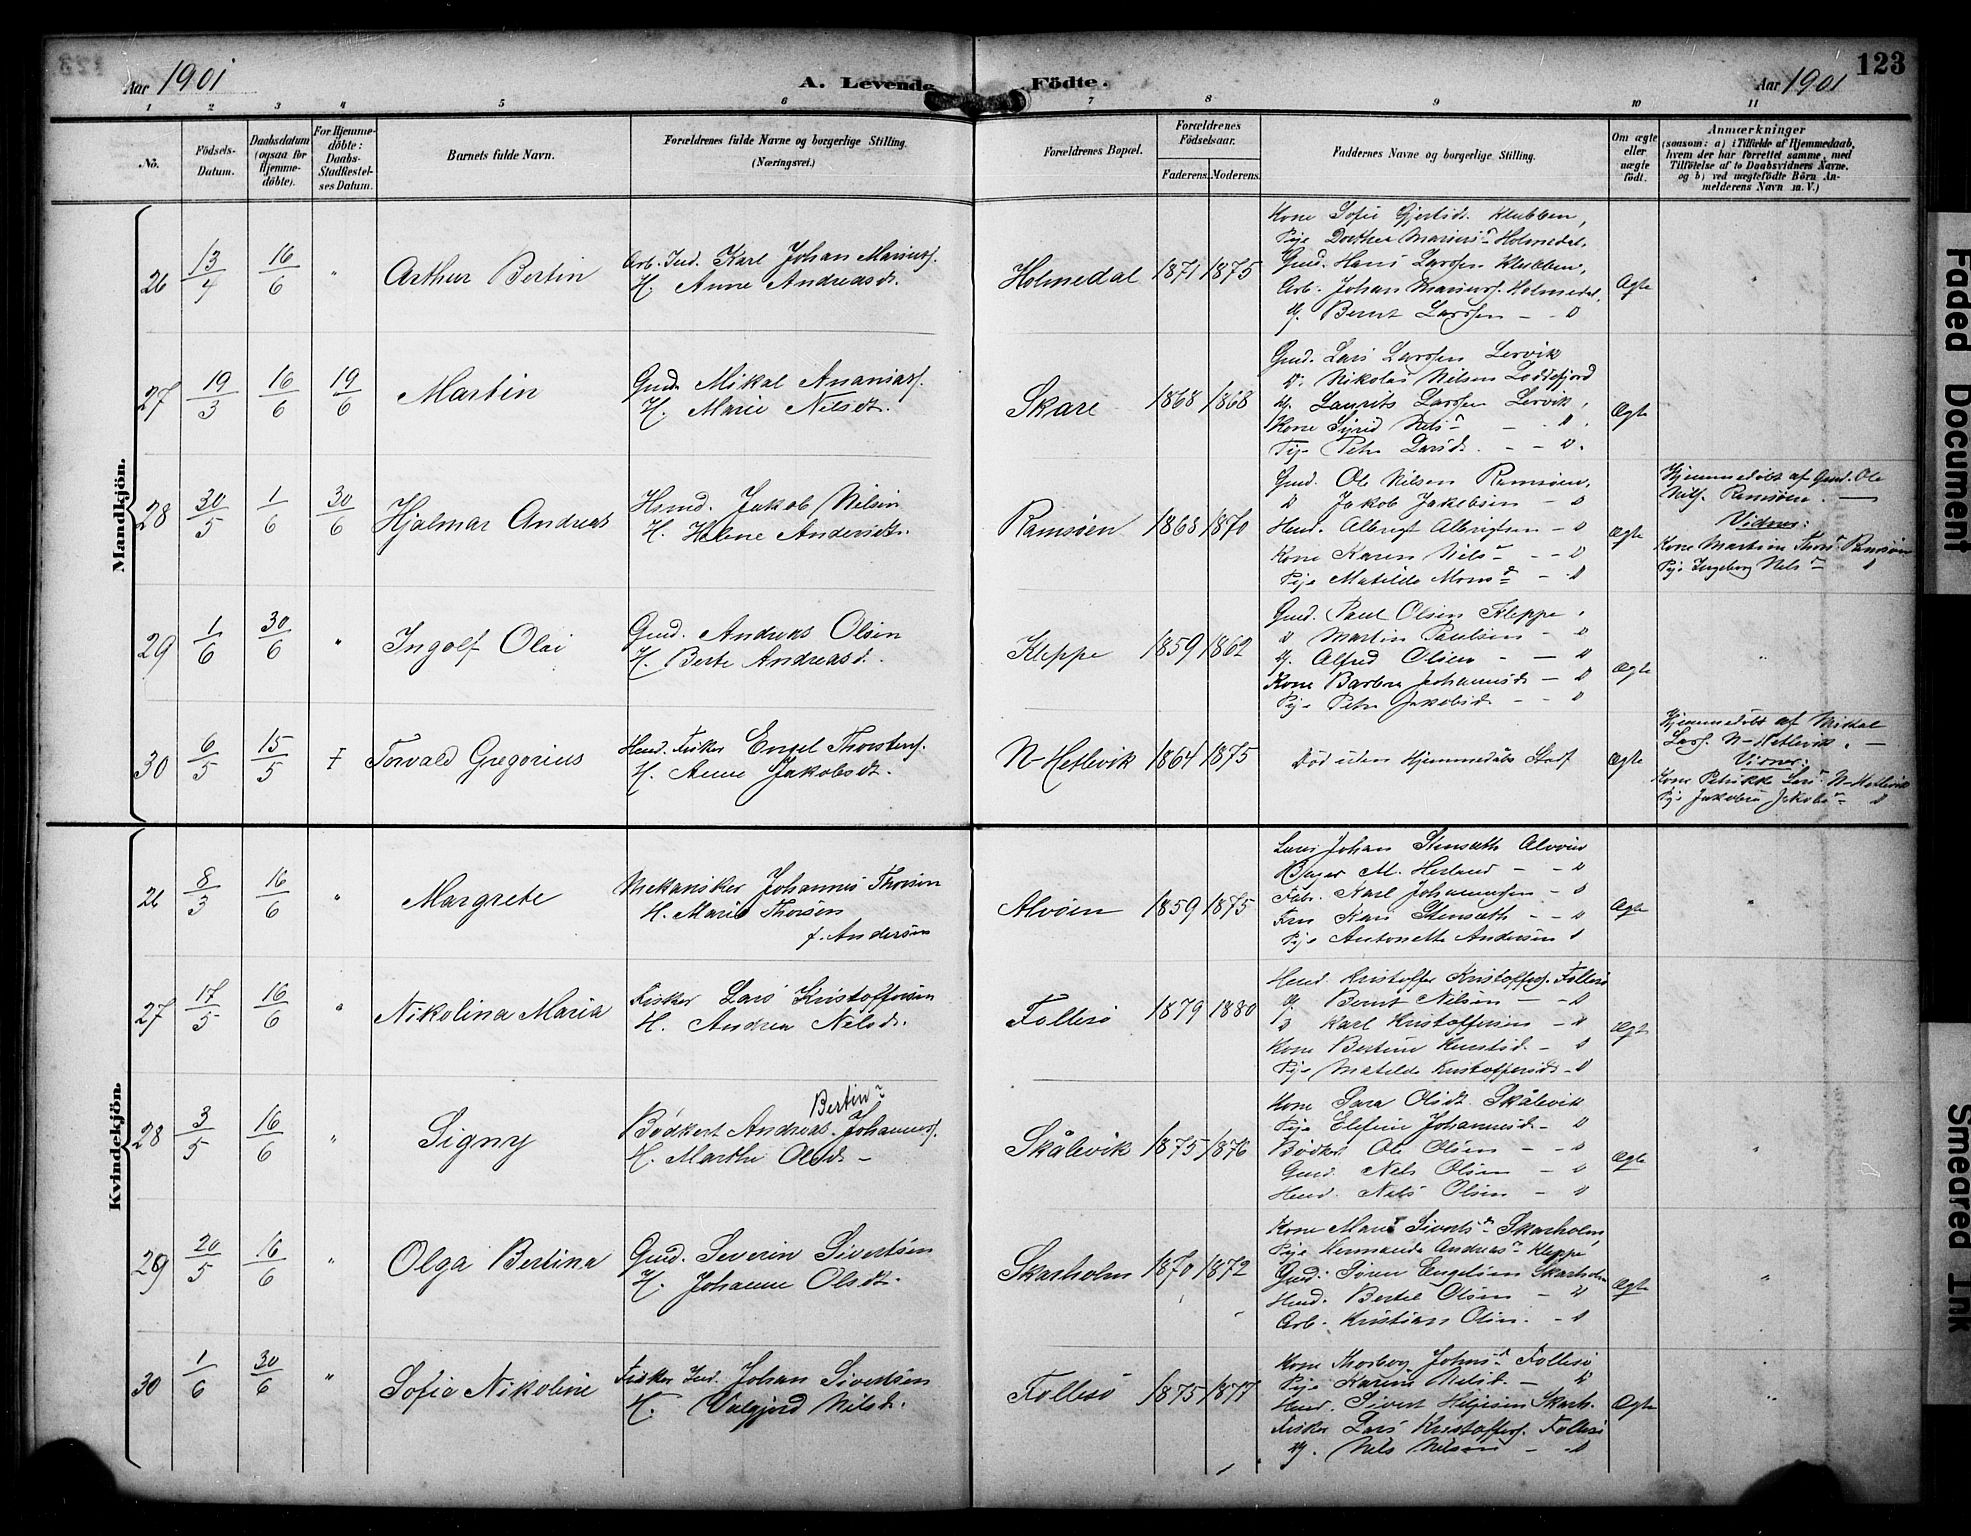 123
Aar 1901
A. Levende Födte.
Aar 1901
1 2 3 4 5 6 7 8 9 10 11
No.
Födsels-Datum.
Daabsdatum (ogsaa for Hjemme-döbte).
For Hjemme-döbte: Daabs-Stadfæstel-ses Datum.
Barnets fulde Navn.
Forældrenes fulde Navne og borgerlige Stilling. (Næringsvei.)
Forældrenes Bopæl.
Forældrenes Födselsaar.
Faderens. Moderens.
Faddernes Navne og borgerlige Stilling.
Om ægte eller uægte født.
Anmærkninger
(saasom: a) i Tilfælde af Hjemmedaab, hvem der har forrettet samme, med Tilföielse af to Daabsvidners Navne. og b) ved uægtefödte Börn An-melderens Navn m. V.)
Mandkjön.
26 13/4 16/6 " Arthur Bertin
Arb. Ind. Karl Johan Mariusf.
H. Anne Andreasd.
Holmedal 1871 1875
Kone Sofie Gjertsd. Klubben,
Pige Dorthea Marius d Holmedal,
Gmd. Hans Larssen Klubben,
Arb. Johan Mariusf. Holmedal,
Uf. Bernt Larssen - - "
Ægte "
27 19/3 16/6 19/6 Martin
Gmd. Mikal Ananiasf.
H. Marie Nilsdt.
Skare 1868 1868
Gmd. Lars Larssen Lervik
Do. Nikolai Nilsen Loddefjord
Uf. Laurits Larssen Lervik,
Kone Sigrid Nils d - - "
Pige Petra Larsd. - - "
Ægte
28 30/5 1/6 30/6 Hjalmar Andreas
Hsmd. Jakob Nilsen
H. Helene Andersdt.
Ramsöen 1868 1870
Gmd. Ole Nilsen Ramsöen,
" Jakob Jakobsen - "
Hmd. Albrigt Albrigtsen - "
Kone Karen Nils d - - "
Pige Matilde Mons d - "
Ægte
Hjemmedöbt af Gmd. Ole
Nilsf. Ramsöen. -
Vidner:
Kone Martine Thors d Ramsöen
Pige Ingeborg Nils d "
29 1/6 30/6 " Ingolf Olai
Gmd. Andreas Olsen
H. Berte Andreasd.
Kleppe 1859 1862
Gmd. Paul Olsen Kleppe,
" Martin Paulsen - "
Uf. Alfred Olsen - - "
Kone Barbra Johannesd. - "
Pige Petra Jakobsd. - - "
Ægte "
30 6/5 15/5 Ɨ Torvald Gregorius
Hmd. Fisker Engel Thorstensf.
H. Anne Jakobsdt.
N-Hetlevik 1864 1875
Död uden Hjemmedaabs Stadf
Ægte
Hjemmedöbt af Mikkal
Larsf. N-Hetlevik. -
Vidner:
Kone Petrikke Lars d N-Hetlevik
Pige Jakobine Jakobs d "
Kvindekjön.
26 8/3 16/6 " Margrete
Mekaniker Johannes Thorsen
H. Marie Thorsen
f. Andersen
Alvöen 1859 1875
Johan Stensæth Alvöen
Bager M. Herland - - "
Fabr. Karl Johannessen - "
Fru Kari Stensæth - - "
Pige Antonette Andersen "
Ægte "
27 17/5 16/6 " Nikolina Maria
Fisker Lars Kristoffersen
H. Andrea Nilsd.
Follesö 1879 1880
Hmd. Kristoffer Kristoffersf. Follesö
Uf. Bernt Nilsen - - "
" Karl Kristoffersen - "
Kone Bertine - "
Pige Matilde Kristoffersd. - "
Ægte
28 3/5 16/6 " Signy
Bertin
Bödker Andreas Johannesf.
H. Marthe Olsd. -
Skålevik 1875 1876
Kone Sara Olsdt. Skålevik
Pige Johannesd. - "
Bödker Ole Olsen - - "
Gmd. Nels Olsen - "
Hmd. Nels Olsen - "
Ægte "
29 20/5 16/6 " Olga Bertina
Gmd. Severin Sivertsen
H. Johanne Olsdt.
Skarholm 1870 1872
Kone Mari Siverts d Skarholm,
Pige Hermanda Andreas d Kleppe
Gmd. Sören Engelsen Skarholm
Hmd. Bertel Olsen - "
Arb. Kristian Olsen. - "
Ægte "
30 1/6 30/6 " Sofie Nikoline
Fisker Ind. Johan Sivertsen
H. Valgjerd Nilsd.
Follesö 1875 1877
Kone Thorborg Johns d Follesö
Pige Karine Nilsd. - "
Hmd. Sivert Helgesen Skarh.
Fisker Lars Kristoffersf. Follesö
Uf. Nils Nilsen - "
Ægte "
Faded Document
Smeared Ink